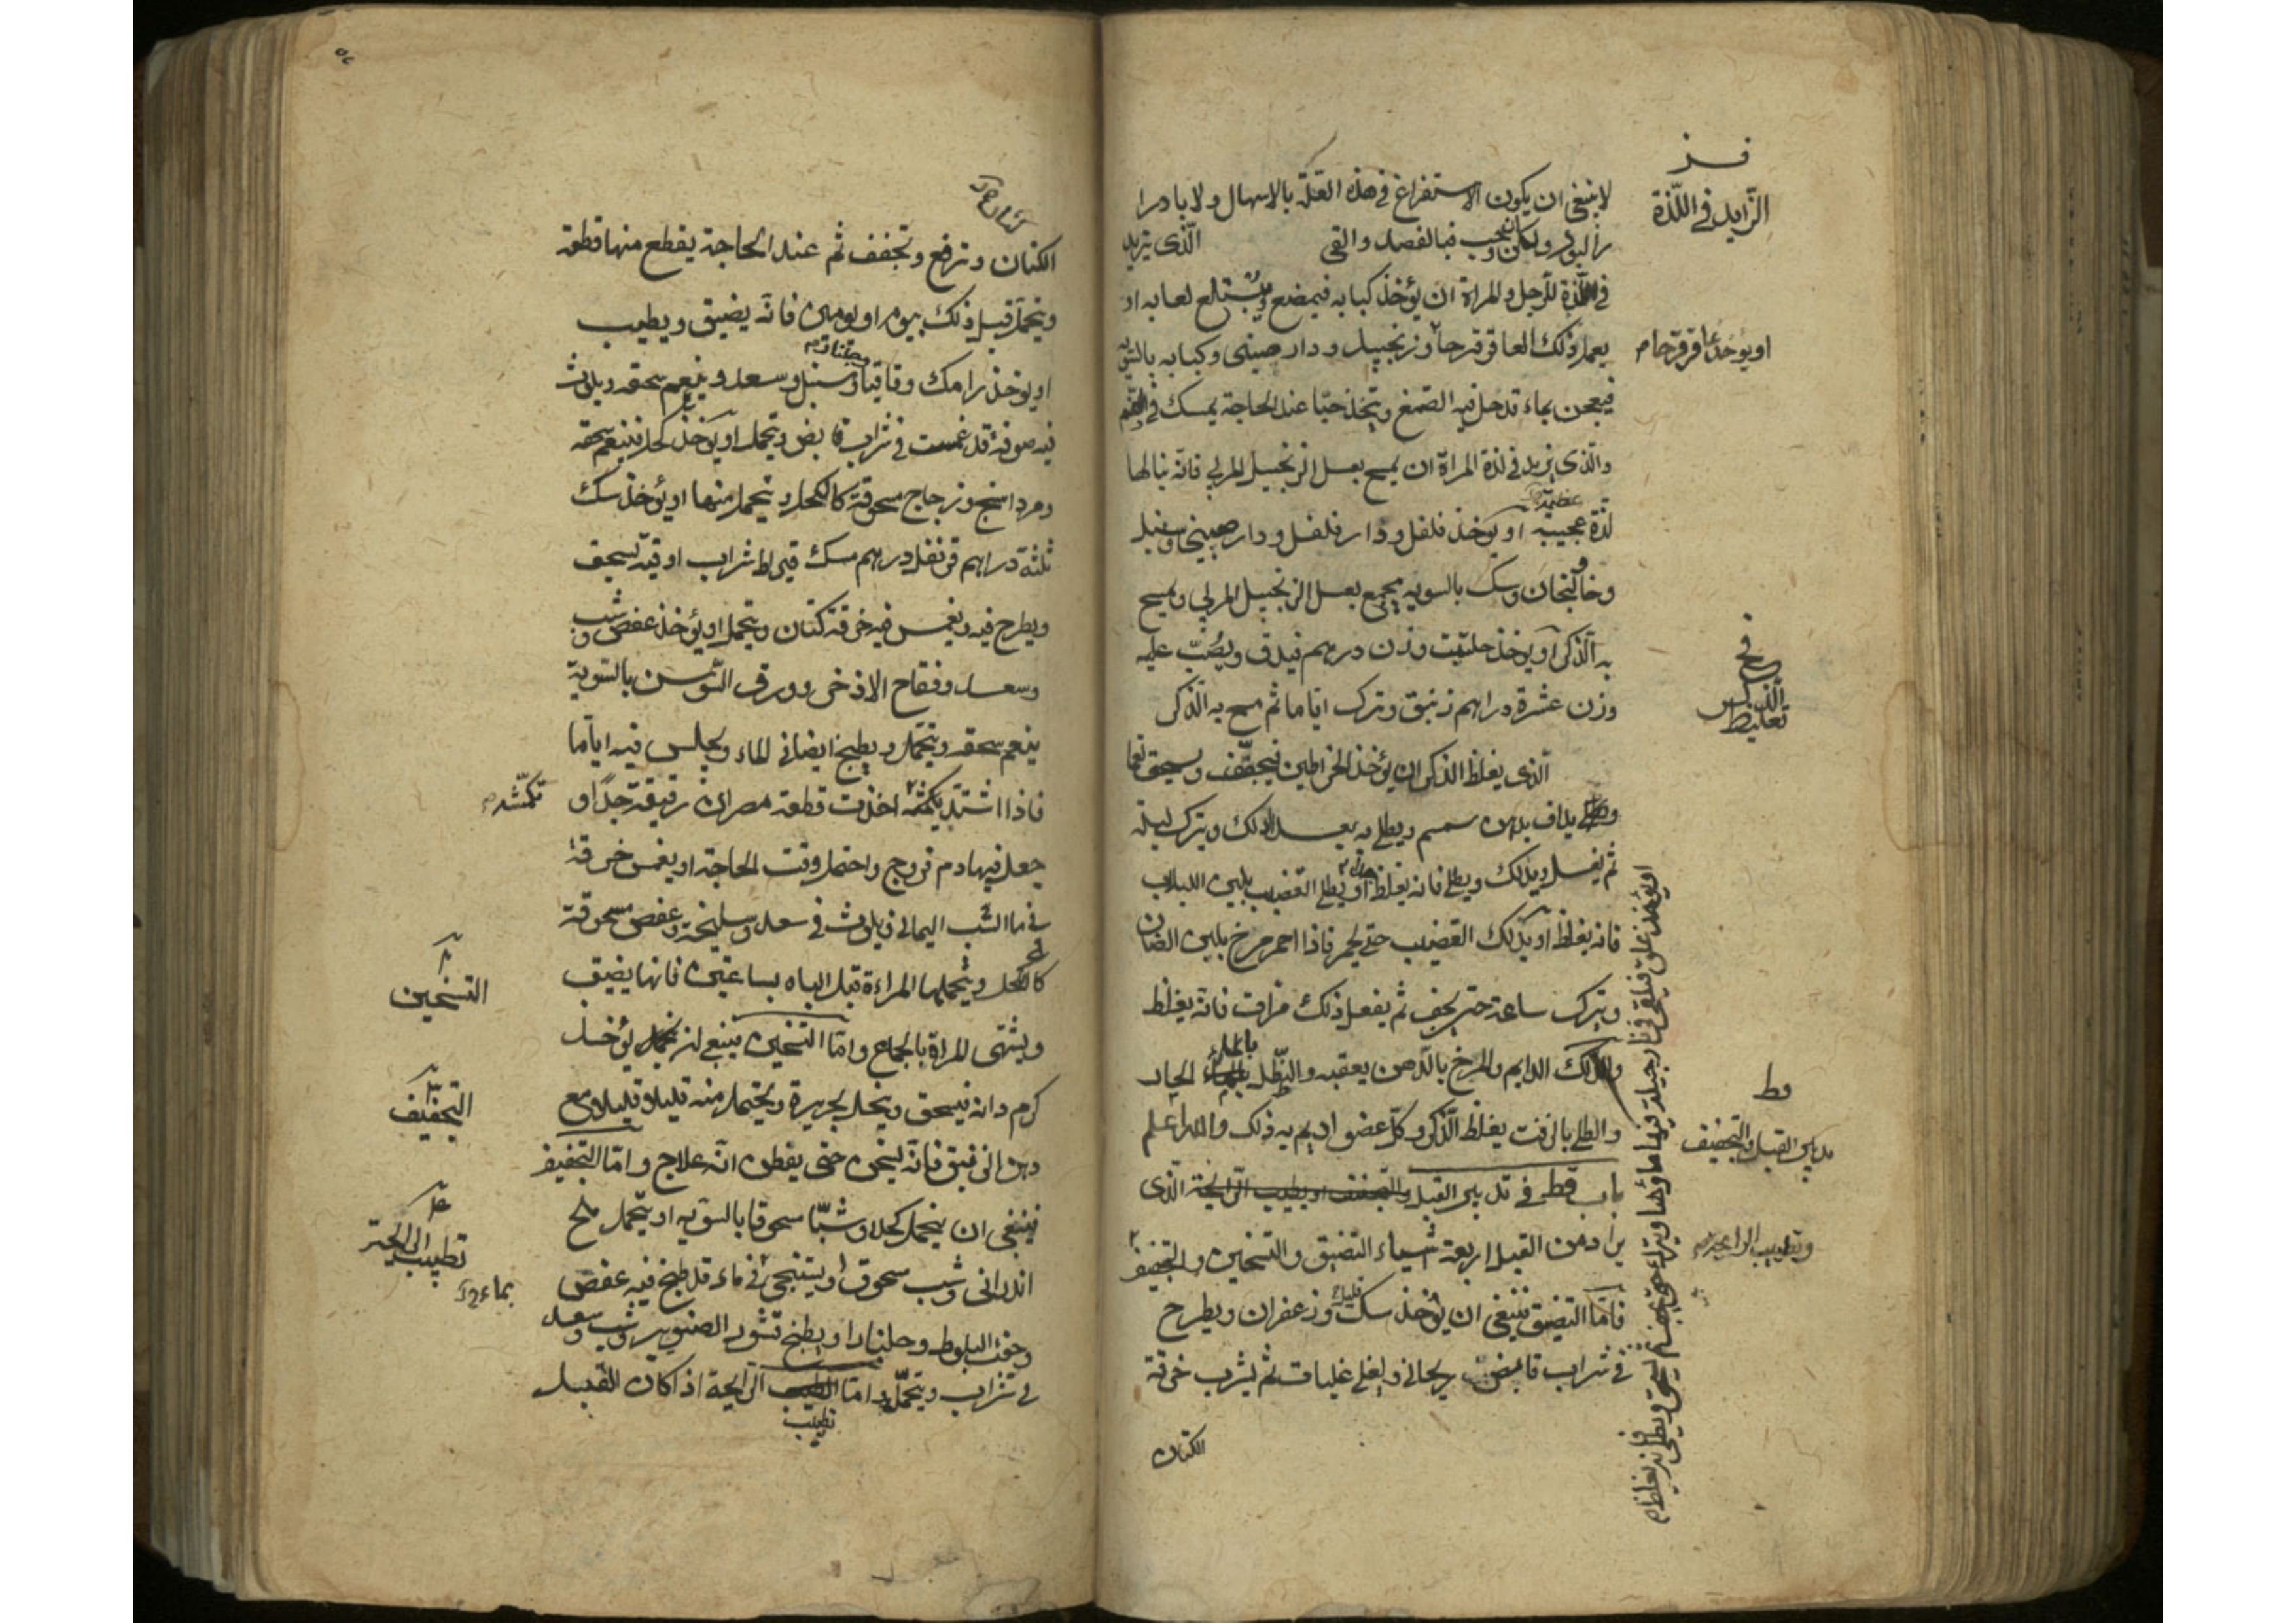 فز
الزايد في اللذة
لا ينبغي ان يكون الاستفراغ في هذه العلة بالاسهال ولا بادرا
ر البول ولكن يجب فبالفصد والقي الذى يزيد
في اللذة للرجل والمراة ان يؤخذ كبابه فيمضغ ويبتلع لعابه او
يعمل ذلك العاقرقرحا وزنجبيل ودارصيني وكبابه بالسويه
او يؤخذ عاقرقرحا
فيعجن بماء قد حل فيه الصمغ ويتخذ حبا عند الحاجة يمسك في الفم
والذى يزيد في لذة المراة ان يمسح بعسل الزنجبيل المربي فانه ينالها
لذة عجيبه او يؤخذ فلفل ودارفلفل ودارصيني وسنبل
عظيمة
وخالنجان وسك بالسويه يجمع بعسل الزنجبيل المربي ويمسح
به الذكر او يؤخذ حلتيت وزن درهم فيدق ويصب عليه
وزن عشرة دراهم زنبق وترك اياما ثم مسح به الذكر
فح
تغليظ الذكر
الذى يغلظ الذكر ان يؤخذ الخراطين فيجفف ويسحق نعما
يداف بدهن سمسم ويطلى به بعد الدلك ويترك ليلة
ثم يغسل ويدلك ويطلى فانه يغلظ او يطلى القضيب بلبن اللبلاب
فانه يغلظ او يدلك القضيب حتى يحمر فاذا احمر مرخ بلبن الضان
ويترك ساعة حتى يجف ثم يفعل ذلك مرات فانه يغلظ
والدلك الدايم والمرخ بالدهن يعقبه والنطل بالماء الحار
والطلى بالزفت يغلظ الذكر وكل عضو اديم به ذلك والله اعلم
قط
تدبير القبل والتجفيف
باب قط في تدبير القبل والتجفف او يطيب الرايحة الذى
يراد من القبل اربعة اشياء التضيق والتسخين والتجفيف
وتطييب الرايحة
فاما التضيق فينبغي ان يؤخذ سك وزعفران ويطرح
في شراب قابض ريحاني ويغلى غليات ثم يشرب خرقة
الكتان
الكتان وترفع وتجفف ثم عند الحاجة يقطع منها قطعة
ويتحمل قبل ذلك بيوم او يومين فانه يضيق ويطيب
او يؤخذ رامك وقاقيا وسنبل وسعد وينعم سحقه ويلوث
فيه صوفة قد غمست في شراب قابض ويتحمل او يؤخذ كحل فينعم سحقه
ومرداسنج وزجاج مسحوقة كالكحل ويتحمل منها او يؤخذ سك
ثلثة دراهم قرنفل درهم مسك قيراط شراب اوقية يسحق
ويطرح فيه ويغمس فيه خرقة كتان ويتحمل او يؤخذ عفص وشب
وسعد وفقاح الاذخر وورق السوسن بالسوية
ينعم سحقه ويتحمل ويطبخ ايضا في الماء ويجلس فيه اياما
فاذا اشتد اخذت قطعة مصران رقيقة جدا و
جعل فيها دم فروج واحتمل وقت الحاجة او يغمس خرقة
في ما الشب اليماني ويلوث في سعد وسليخة وعفص مسحوقة
كالكحل ويتحملها المراءة قبل الباه بساعتين فانها يضيق
التسخين
ويشتهى المراة بالجماع واما التسخين فينبغي ان يؤخذ
كرم دانه فيسحق وينخل بحريرة ويحتمل منه قليلا قليلا مع
التجفيف
دهن الزنبق فانه يسخن حتى يفطن انه علاج واما التجفيف
فينبغي ان يتحمل كحلا وشبا مسحوقا بالسويه او يتحمل ملح
تطييب الرايحة
اندراني وشب مسحوق او يستنجى في ماء قد طبخ فيه عفص
بماء
وجفت البلوط وجلنار او يطبخ قشور الصنوبر وشب وسعد
في شراب ويتحمل واما الرايحة اذا كان للقبل
تطييب